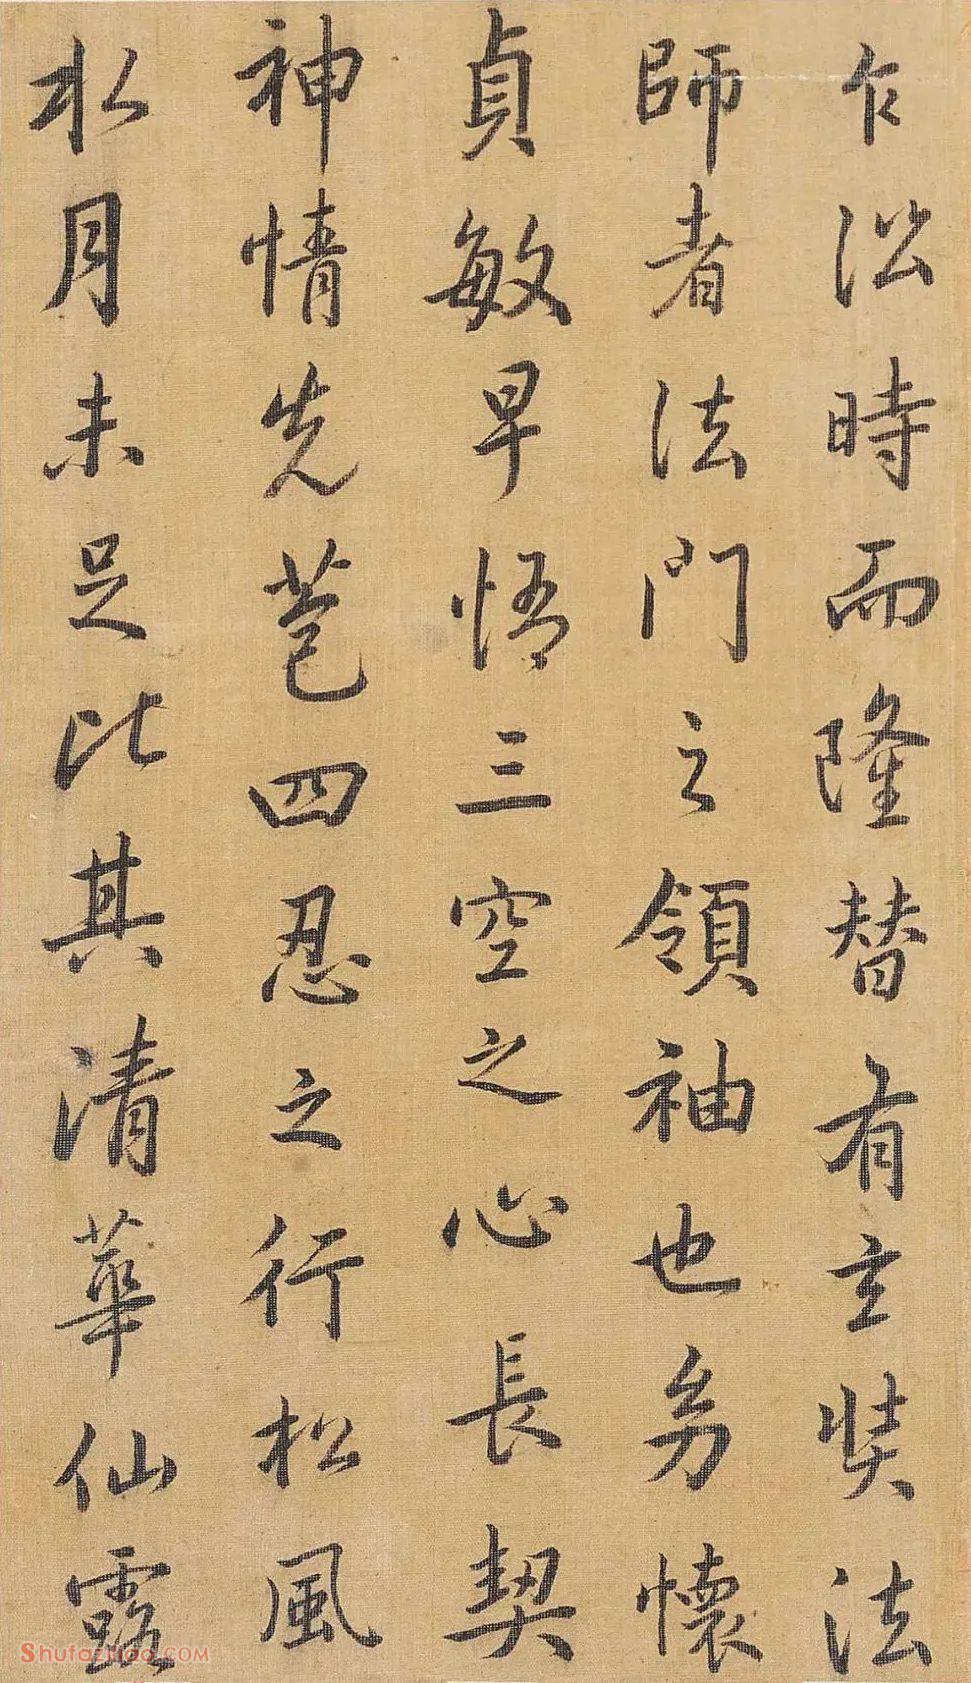 乍沿時而隆替有玄奘法
師者法門之領袖也幼懷
貞敏早悟三空之心長契
神情先苞四忍之行松風
水月未足比其清華仙露